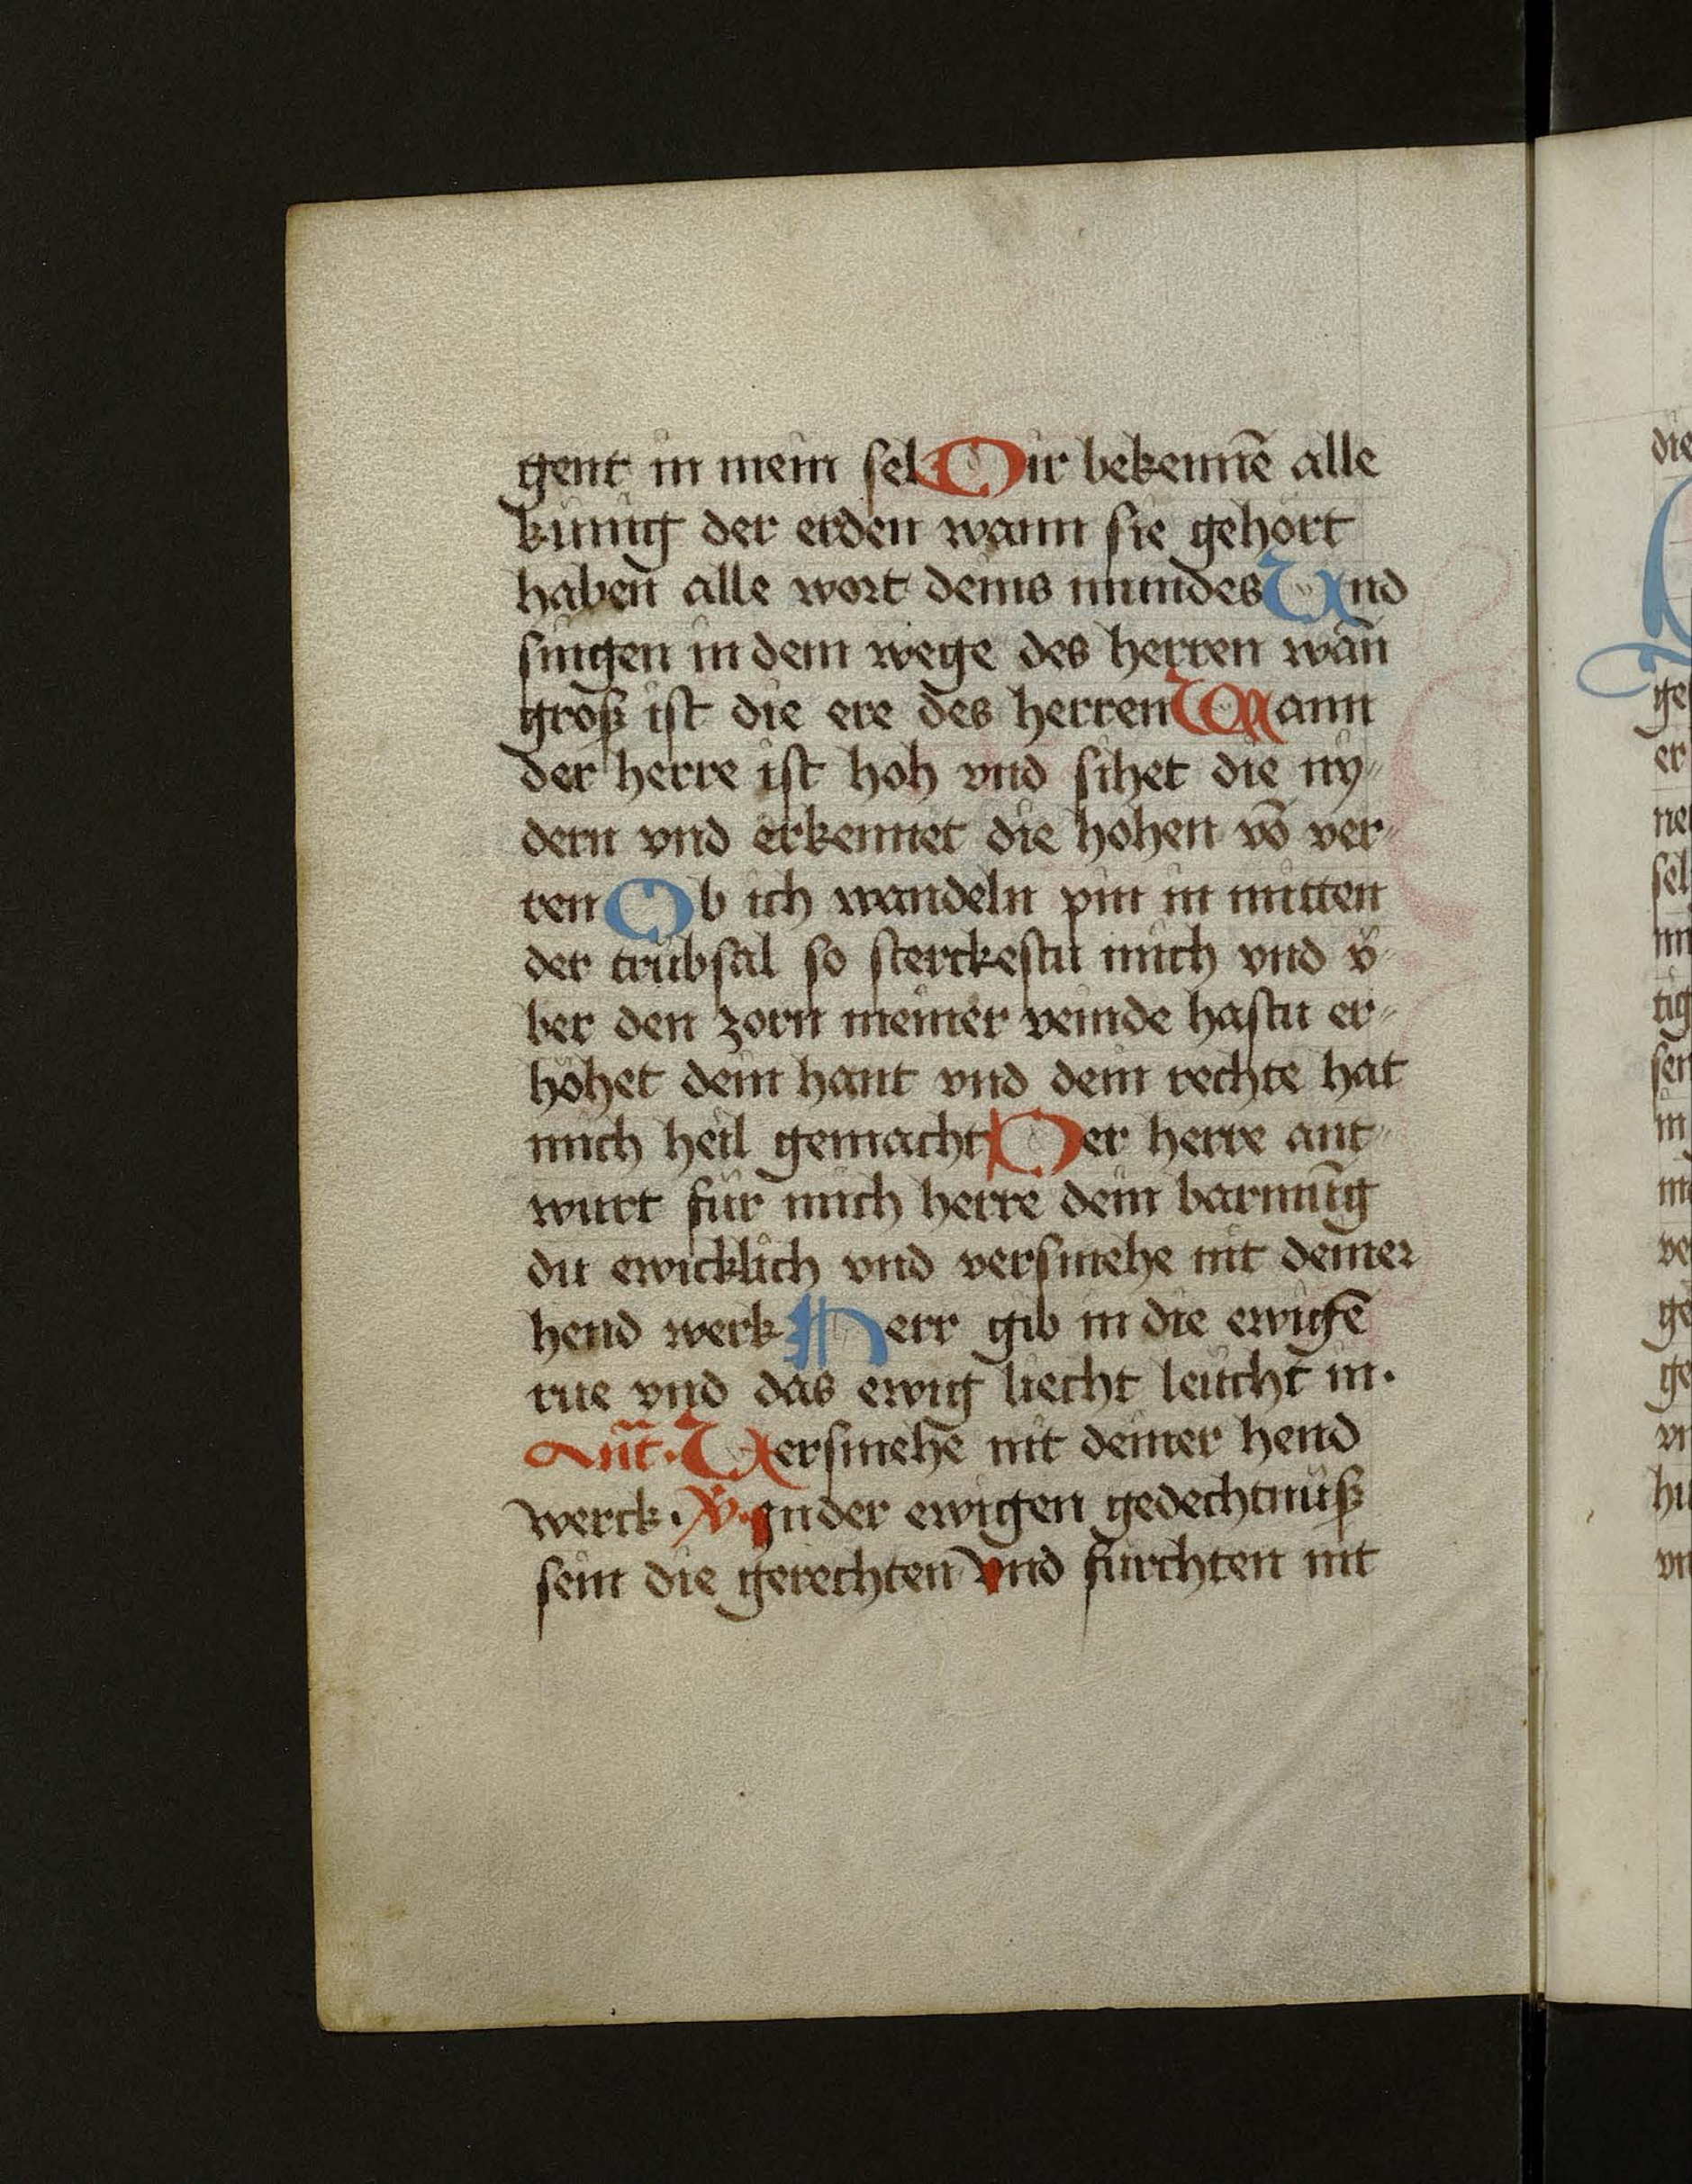 gent in mein sel Dir bekennē alle
kunig der erden wann sie gehort
haben alle wort deins mundes Und
singen in dem wege des herren wañ
groß ist die ere des herren Wann
der herre ist hoh vnd sihet die ny⸗
dern vnd erkennet die hohen vō ver⸗
ren Ob ich wandeln pin in mitten
der trübsal so sterckestu mich vnd ü⸗
ber den zorn meiner veinde hastu er⸗
höhet dein hant vnd dein rechte hat
mich heil gemacht Der herre ant⸗
wurt für mich herre dein barmūg
du ewicklich vnd versmehe nit deiner
hend werk Herr gib in die ewigē
rue vnd das ewig liecht leücht in.
Añt. Versmehe nit deiner hend
werck. V. In der ewigen gedechtnüß
sein die gerechten Vnd fürchten nit
die
ge
er